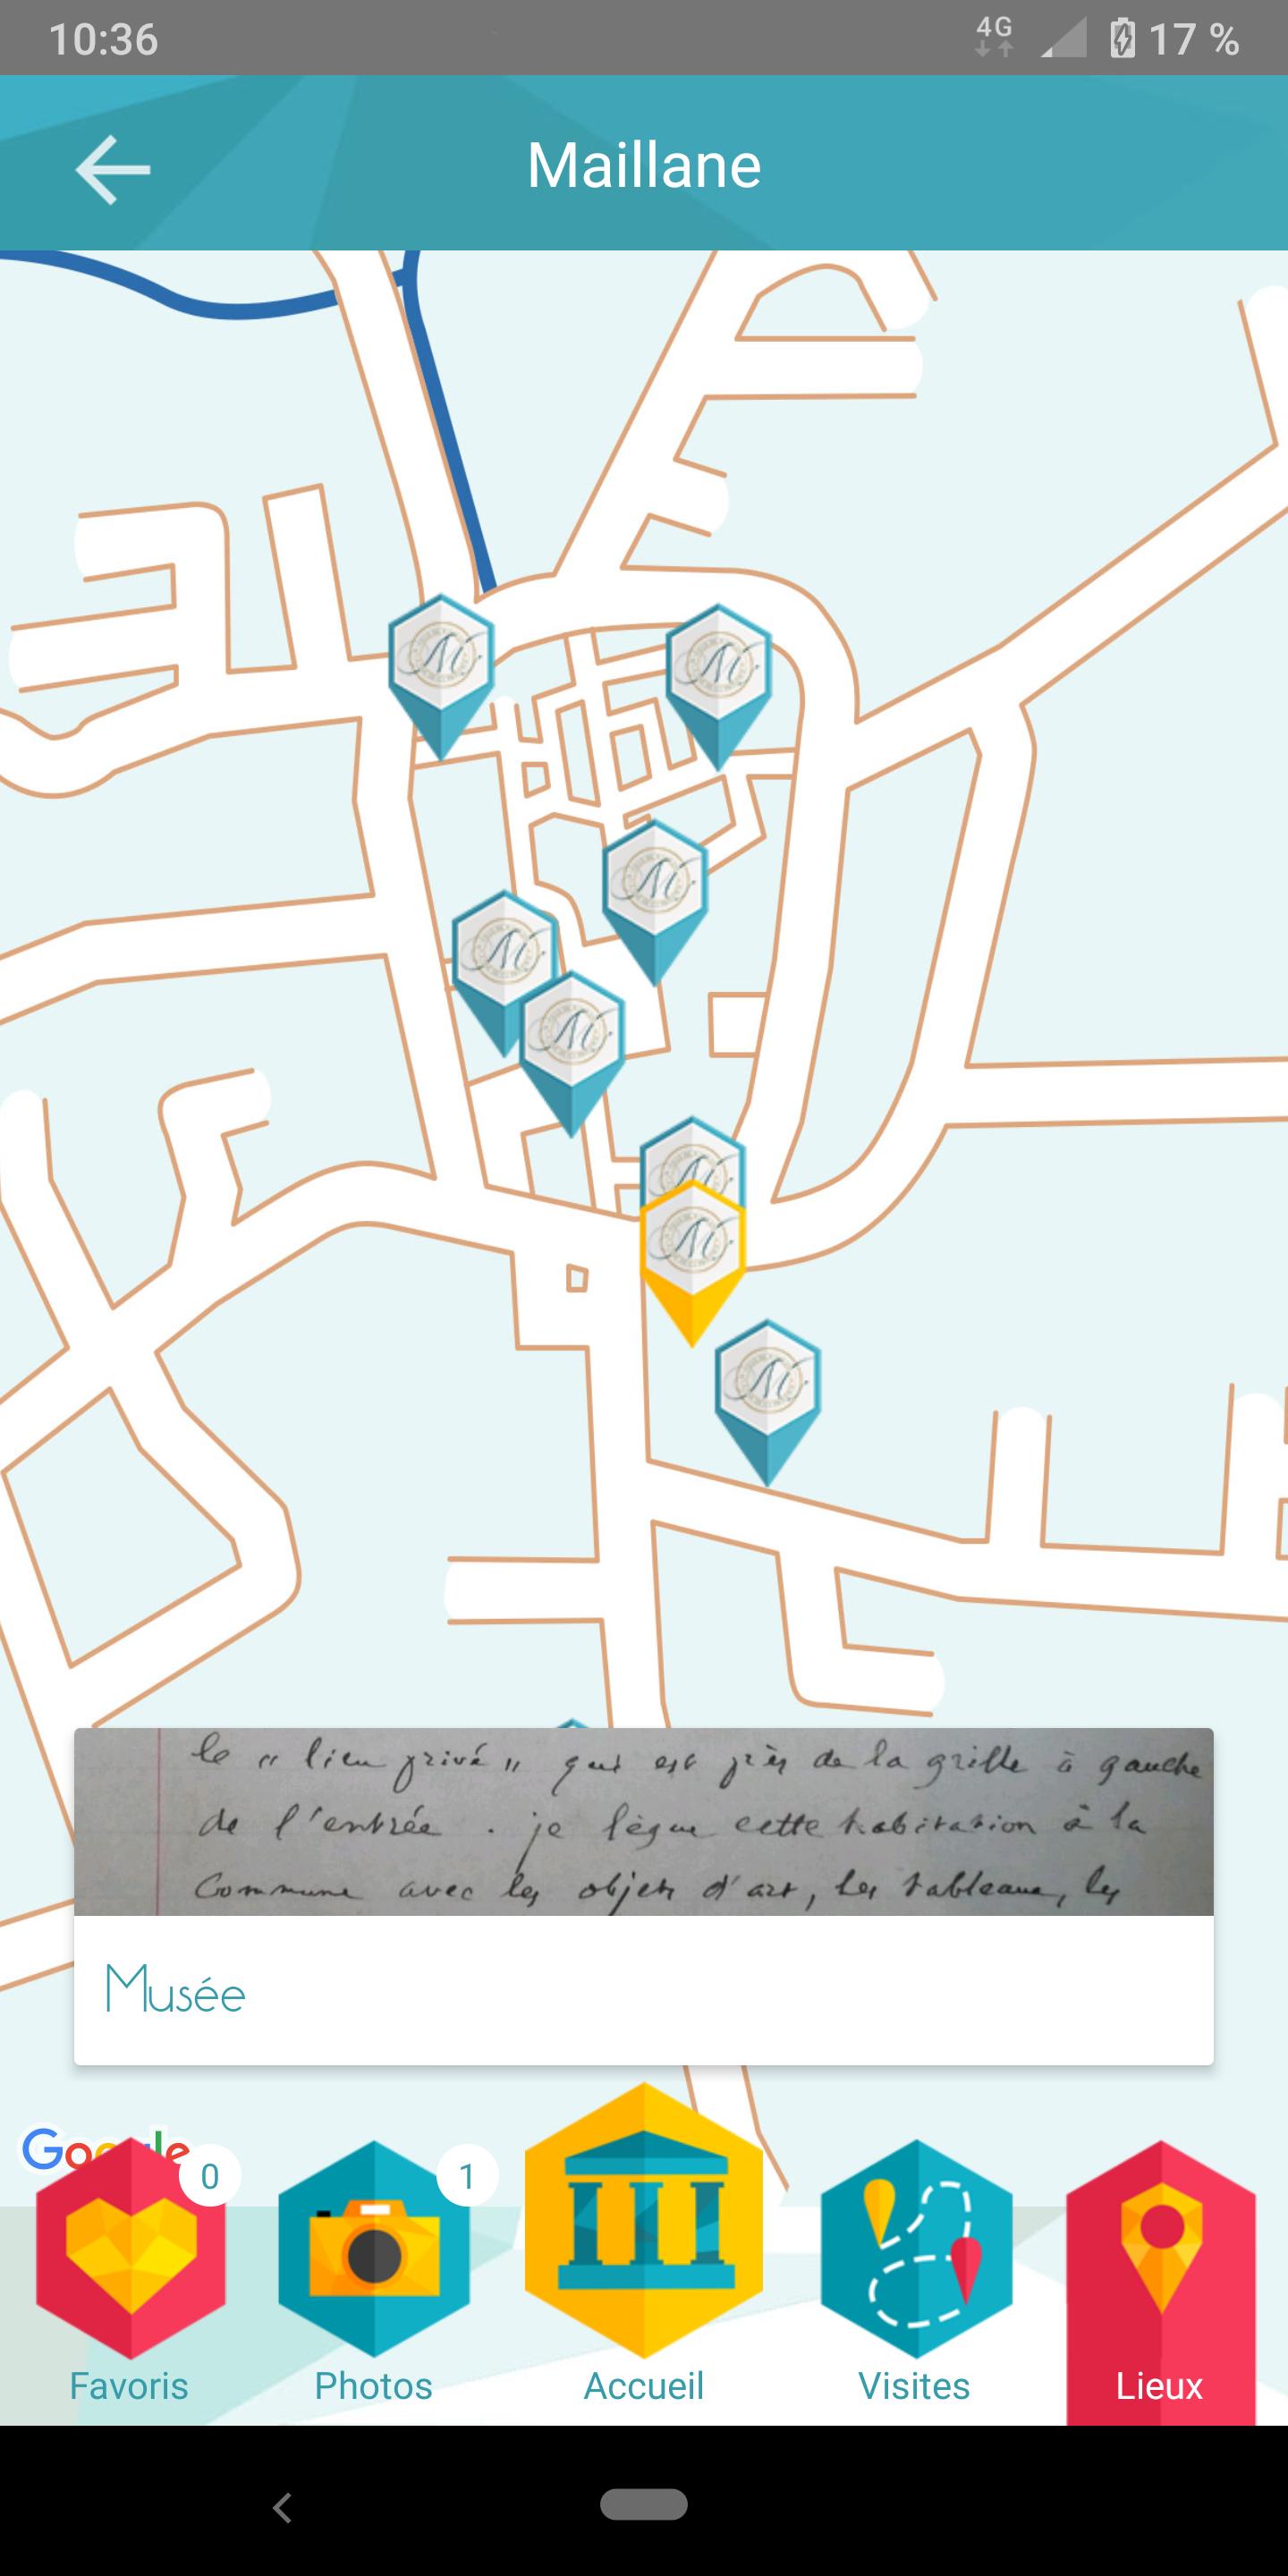 10:36
4G
17 %
Maillane
le « lieu privé » qui est près de la grille à gauche
de l'entrée. je lègue cette habitation à la
Commune avec les objets d'art, les tableaux, les
Musée
Google
0
1
Favoris
Photos
Accueil
Visites
Lieux